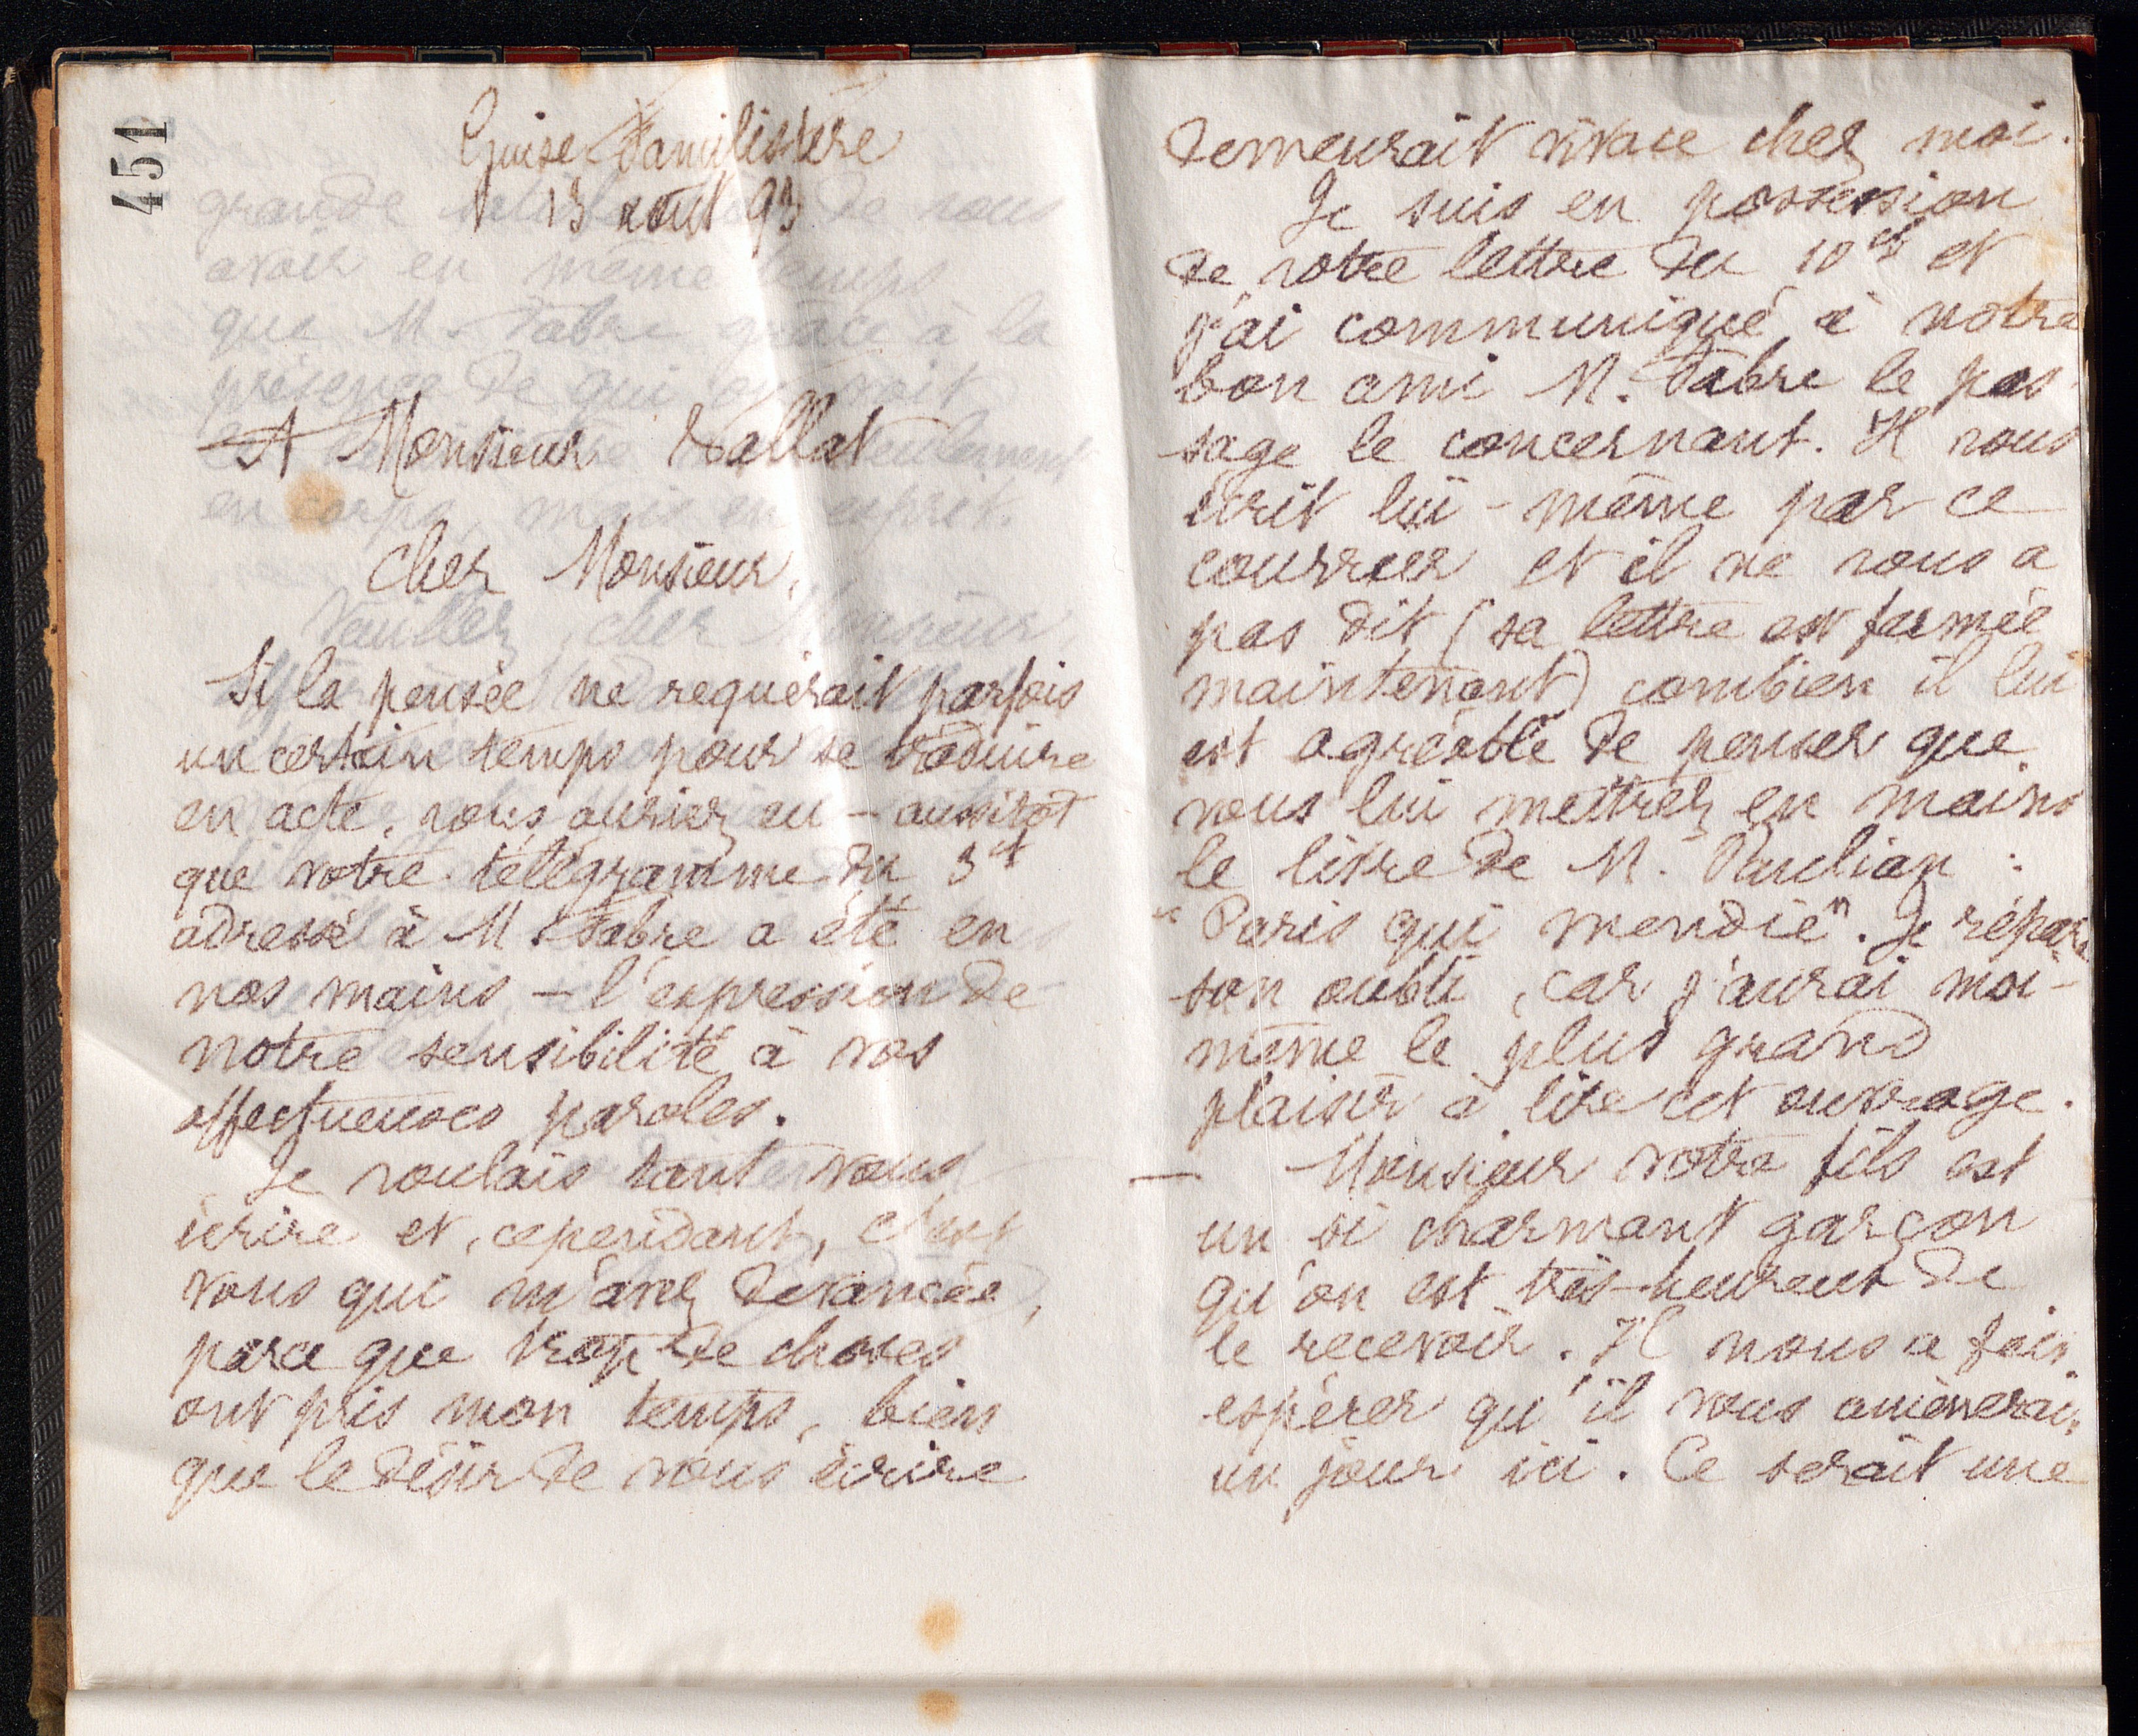 451
Guise Familistère
13 aout 93
A Monsieur Vallat
Cher Monsieur,
Si la pensée ne requérait parfois
un certain temps pour se traduire
en acte, vous auriez eu - aussitôt
que votre télégramme du 3 ct
adressé à M. Fabre a été en
nos mains, - l'expression de
notre sensibilité à vos
affectueuses paroles.
Je voulais tant vous
écrire et, cependant, c'est
vous qui m'avez devancée,
parce que trop de choses
ont pris mon temps, bien
que le désir de vous écrire
demeurait vivace chez moi.
Je suis en possession
de votre lettre du 10 ct et
j'ai communiqué à notre
bon ami M. Fabre le pas
sage le concernant. Il vous
écrit lui-même par ce
courrier et il ne vous a
pas dit (sa lettre est fermée
maintenant) combien il lui
est agréable de penser que
vous lui mettrez en mains
le livre de M. Paulian :
"Paris qui mendie". Je répare
son oubli, car j'aurai moi-
même le plus grand
plaisir à lire cet ouvrage.
— Monsieur votre fils est
un si charmant garçon
qu'on est très-heureux de
le recevoir. Il nous a fait
espérer qu'il vous amènerait
un jour ici. Ce serait une